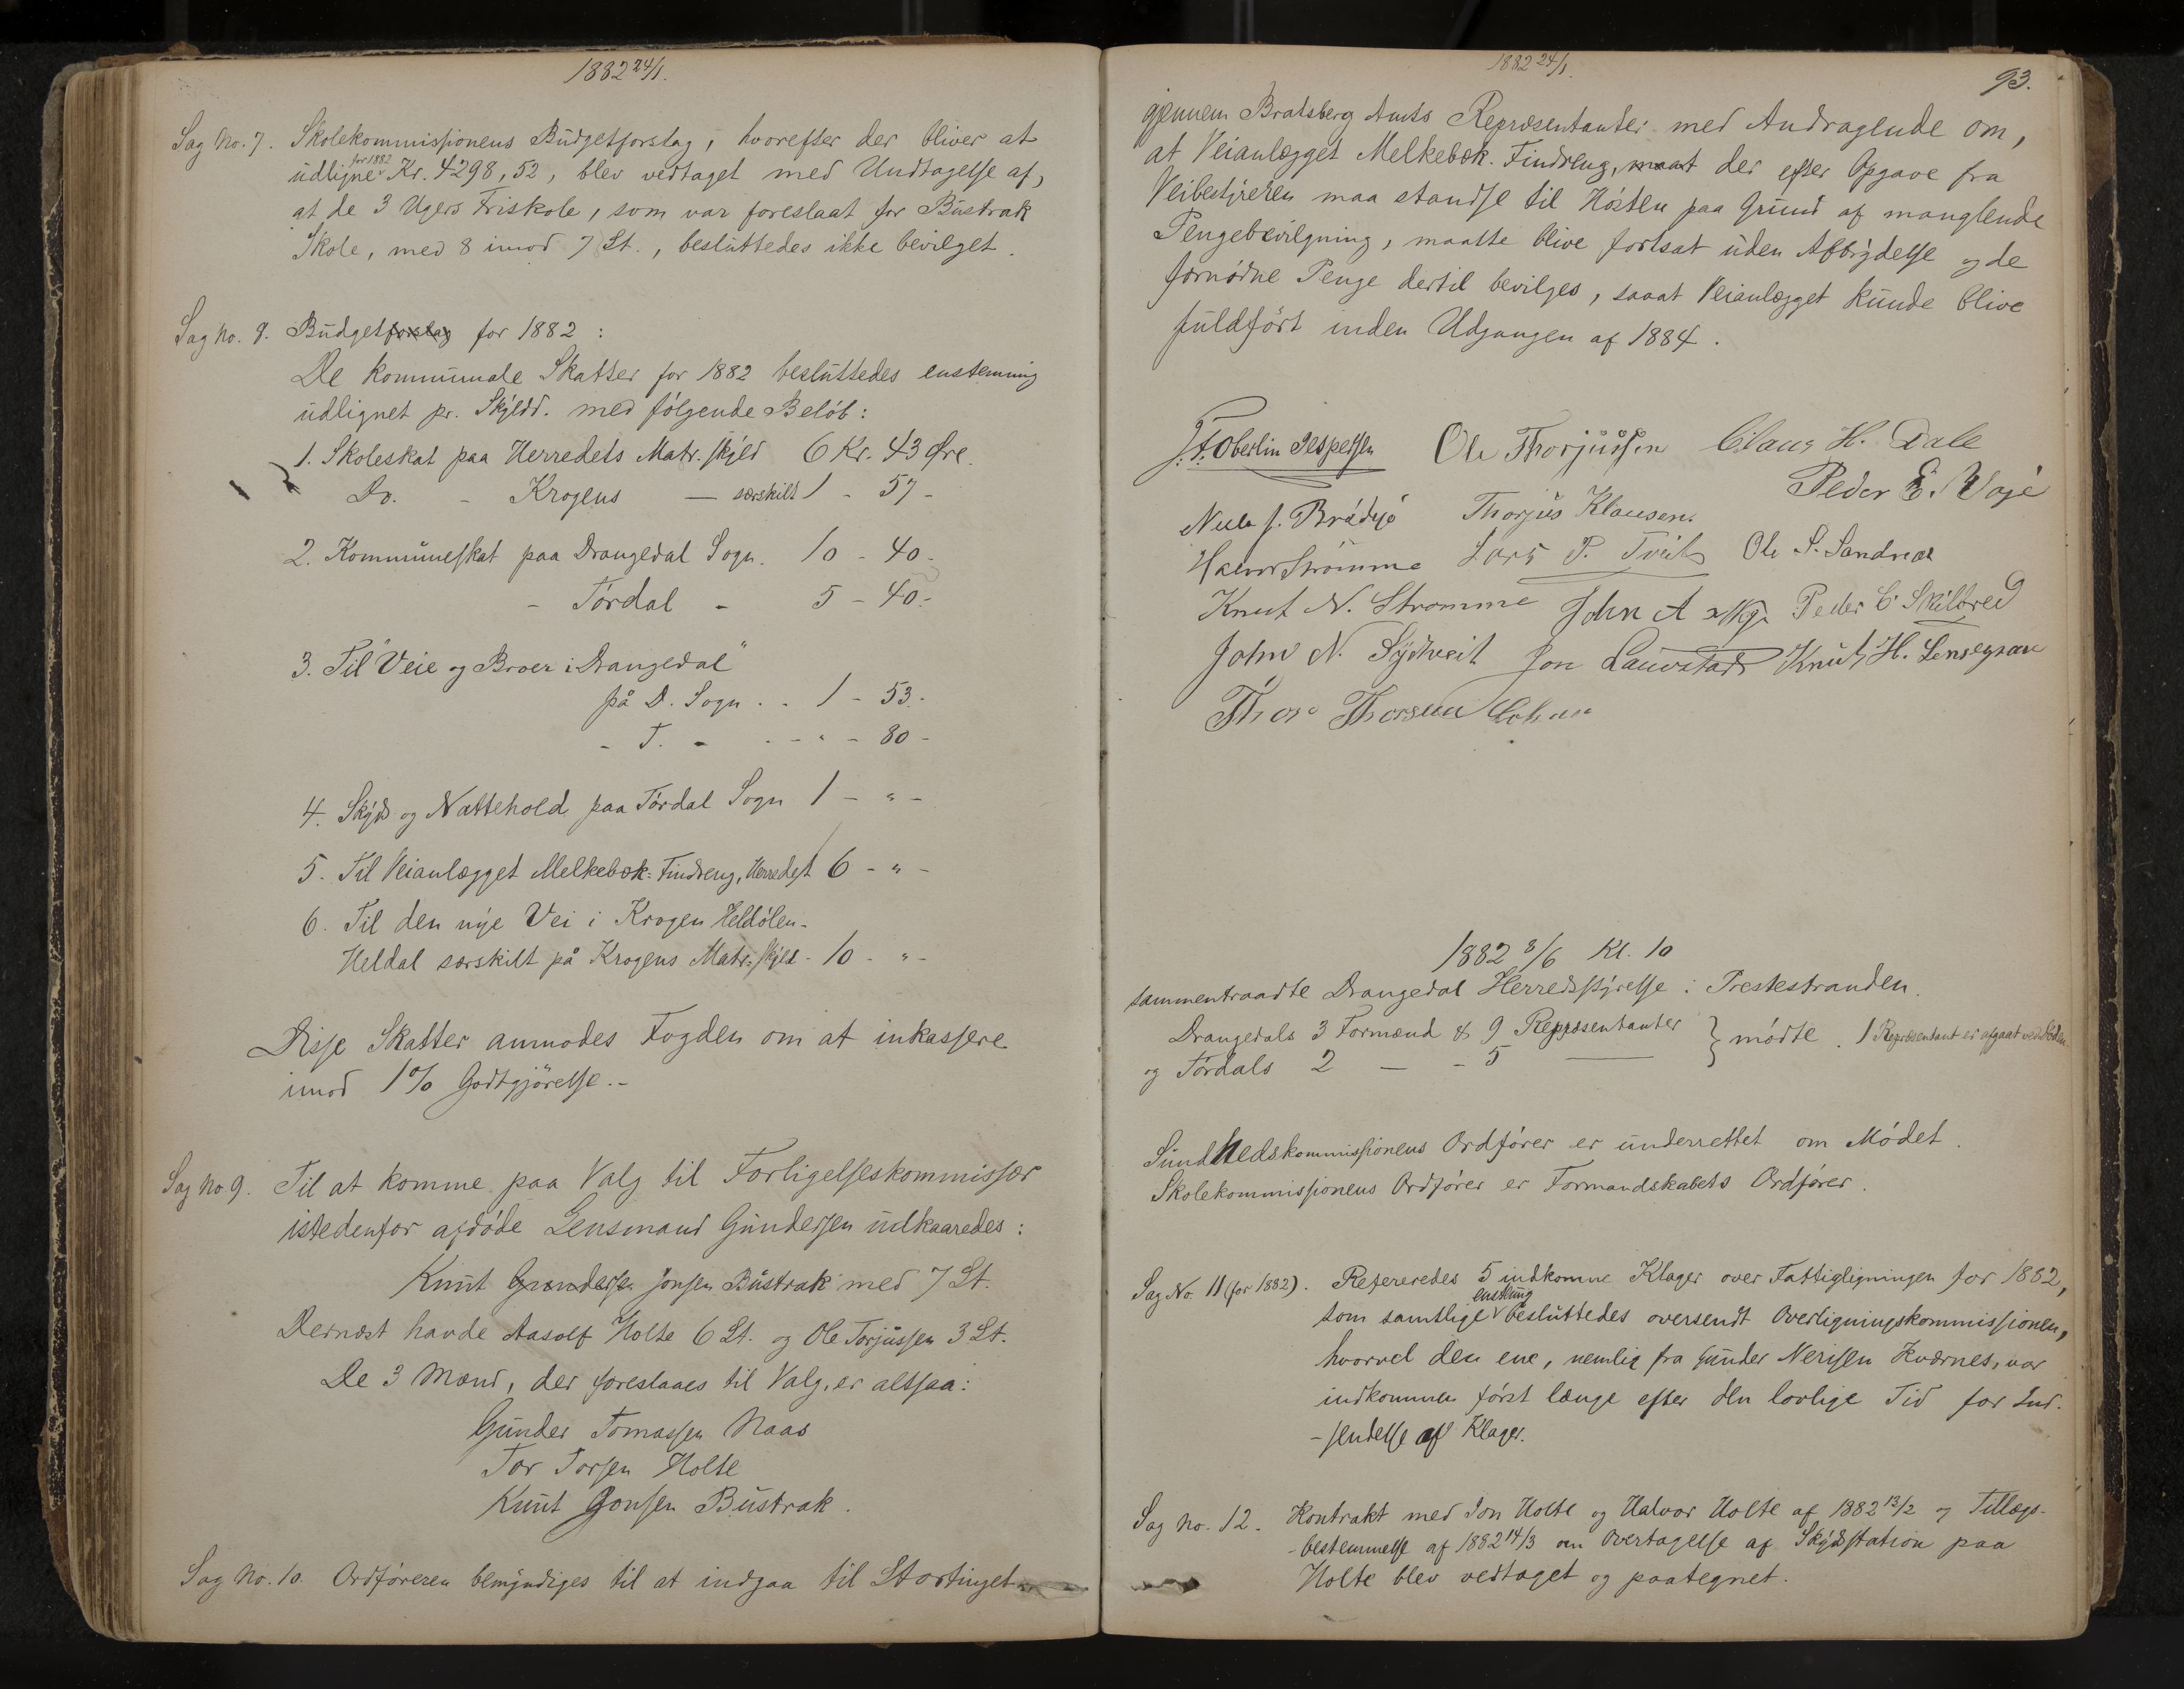 1882 24/1.
Sag No. 7. Skolekommissionens Budgetforslag, hvorefter der bliver at
for 1882
udligne Kr. 4298,52, blev vedtaget med Undtagelse af,
at de 3 Ugers Friskole, som var foreslaat for Bustrak
Skole, med 8 imod 7 St., besluttedes ikke bevilget.
Sag No. 8. Budgetforslag for 1882:
De kommunale Skatter for 1882 besluttedes enstemmig
udlignet pr. Skyldd. med følgende Beløb:
1. Skoleskat paa Herredets Matr. skyld 6 Kr. 43 Øre.
Do. - Krogens — særskilt 1 - 57 -
2. Kommuneskat paa Drangedal Sogn. 10 - 40 -
- Tørdal - 5 - 40 -
3. Til "Veie og Broer i Drangedal"
på D. Sogn . . 1 - 53 -
- T. - . - " - 80 -
4. Skyds og Nattehold paa Tørdal Sogn 1 - " -
5. Til Veianlægget Melkebæk-Findreng, Herredet 6 - " -
6. Til den nye Vei i Krogen Heldølen-
Heldal særskilt på Krogens Matr. skyld - 10 - " -
Disse Skatter anmodes Fogden om at inkassere
imod 1% Godtgjørelse. -
Sag No. 9. Til at komme paa Valg til Forligelseskommissær
istedenfor afdøde Lensmand Gundersen udkaaredes:
Knut Gundersen Jonsen Bustrak med 7 St.
Dernæst havde Aasolf Holte 6 St. og Ole Torjussen 3 St.
De 3 Mænd, der foreslaaes til Valg, er altsaa:
Gunder Tomassen Naas
Tor Torsen Holte
Knut Jonsen Bustrak.
Sag No. 10. Ordføreren bemyndiges til at indgaa til Stortinget
1882 24/1.
93.
gjennem Bratsberg Amts Repræsentanter med Andragende om,
at Veianlægget Melkebæk-Findreng, maat der efter Opgave fra
Veibestyreren maa standse til Høsten paa Grund af manglende
Pengebevilgning, maatte blive fortsat uden Afbrydelse og de
fornødne Penge dertil bevilges, saaat Veianlægget kunde blive
fuldført inden Udgangen af 1884.
J. F. Oberlin Jespersen Ole Thorjussen Claus H. Dale
Peder E. Voje
J. Thorjus Klausen.
Strømme Lars P. Tveit Ole S. Sandnæs
Knut N. Strømme John A Peder C Skilbred
John N. Sydtveit Jon Lauvstad Knut H.
Thor Thorsen
1882 8/6 Kl. 10
sammentraadte Drangedal Herredsstyrelse i Prestestranden.
Drangedals 3 Formænd & 9 Repræsentanter } mødte. 1 Repræsentant er afgaaet ved Døden.
og Tørdals 2 — - 5 —
Sundhedskommissionens Ordfører er underrettet om Mødet.
Skolekommissionens Ordfører er Formandskabets Ordfører.
Sag No. 11 (for 1882). Refereredes 5 indkomne Klager over Fattigligningen for 1882,
enstemmig
som samtlige besluttedes oversendt Overligningskommissionen,
hvorvel den ene, nemlig fra Gunder Nerisen Kværnes, var
indkommen først længe efter den lovlige Tid for Ind-
-sendelse af Klager.
Sag No. 12. Kontrakt med Jon Holte og Halvor Holte af 1882 13/2 og Tillægs-
-bestemmelse af 1882 14/3 om Overtagelse af Skydsstation paa
Holte blev vedtaget og paategnet.